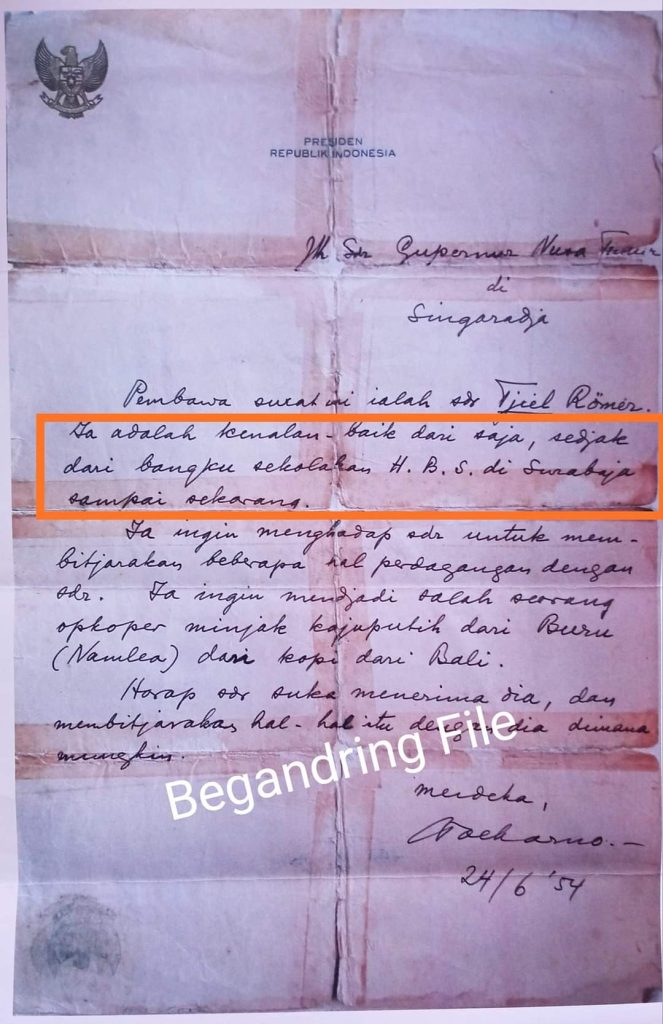 PRESIDEN
REPUBLIK INDONESIA
Jth Sdr Gupernur Nusa
di
Singaradja
Pembawa surat ini ialah sdr Tjiel Römer.
Ia adalah kenalan-baik dari saja, sedjak
dari bangku sekolahan H.B.S. di Surabaja
sampai sekarang.
Ia ingin menghadap sdr untuk mem-
bitjarakan beberapa hal perdagangan dengan
sdr. Ia ingin mendjadi salah seorang
opkoper minjak kajuputih dari Buru
(Namlea) dan kopi dari Bali.
Harap sdr suka menerima dia, dan
membitjarakan hal-hal itu dengan dia dimana
mungkin.
Begandring File
Merdeka,
Soekarno.-
24/6 '54